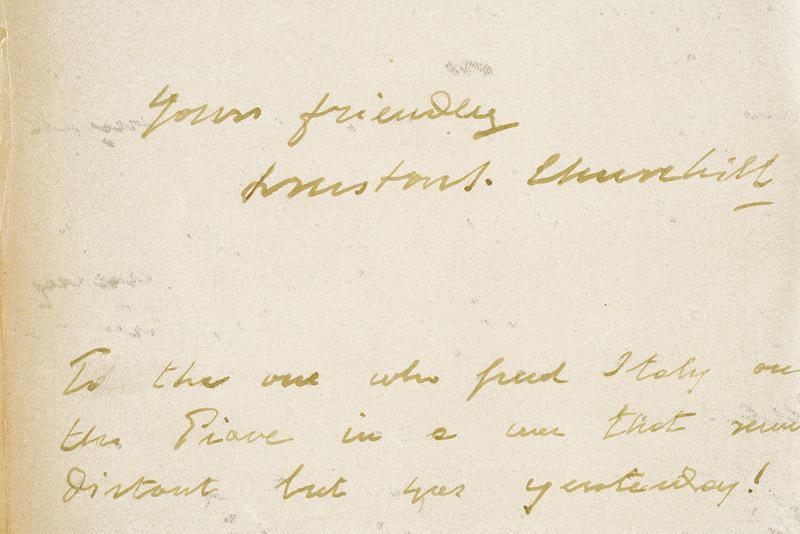 Yours friendly
Winston S. Churchill
To the one who freed Italy on
the Piave in a war that
distant but was yesterday!